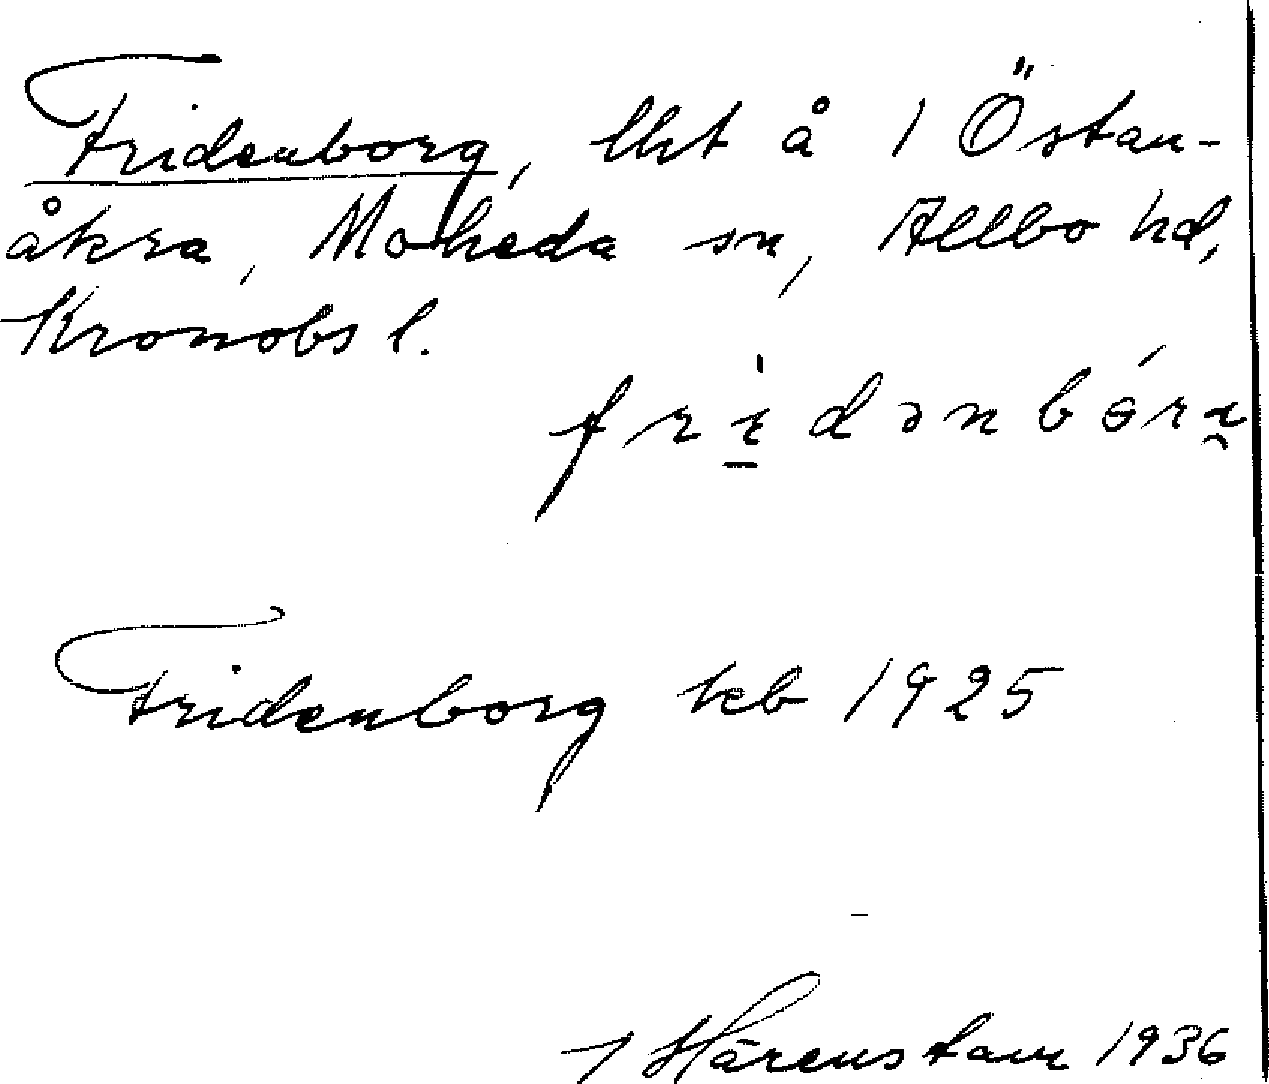 Fridenborg, lht å 1 Östan-
åkra, Moheda sn, Allbo hd,
Kronobs l.
Fridenborg kb 1925
Härenstam 1936